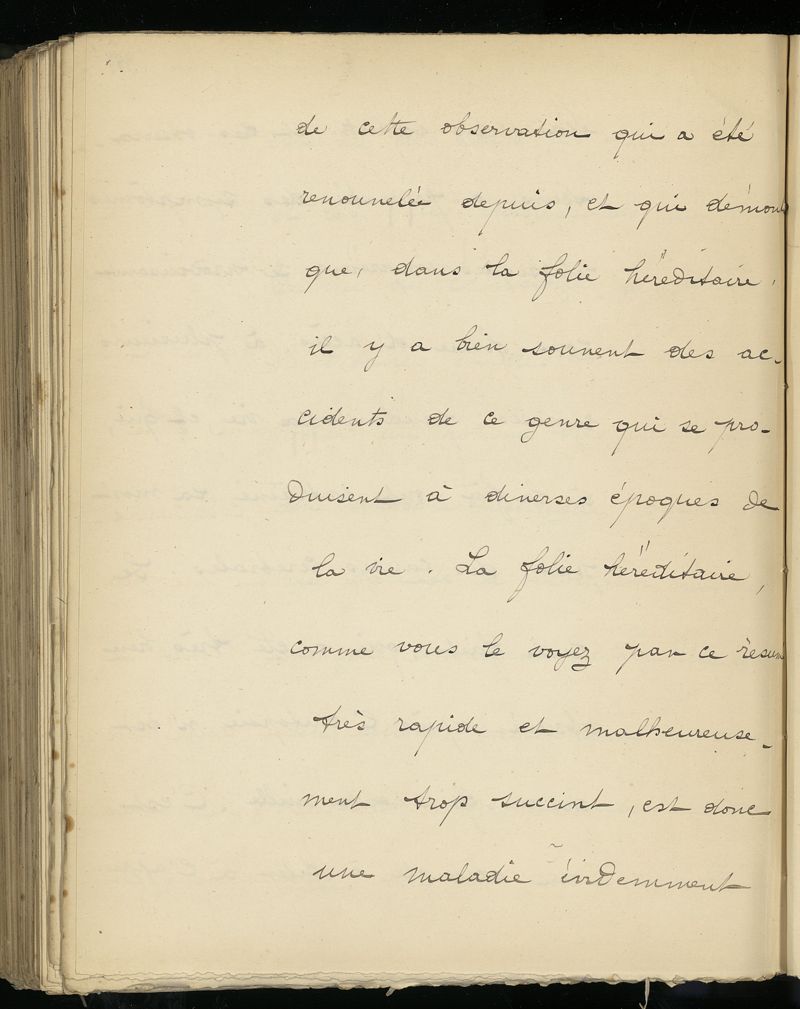 de cette observation qui a été
renouvelée depuis, et qui démon
que, dans la folie héréditaire,
il y a bien souvent des ac-
cidents de ce genre qui se pro-
duisent à diverses époques de
la vie. La folie héréditaire,
comme vous le voyez par ce résum
très rapide et malheureuse-
ment trop succint, est donc
une maladie évidemment